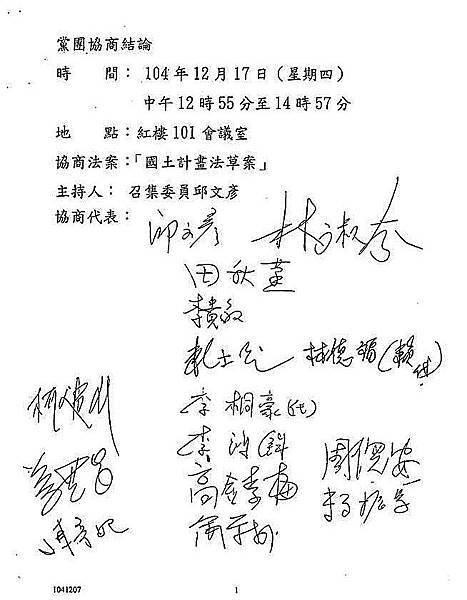 黨團協商結論
時　　間：104年12月17日（星期四）
中午12時55分至14時57分
地　　點：紅樓101會議室
協商法案：「國土計畫法草案」
主持人：召集委員邱文彥
協商代表：邱文彥　林淑芬
田秋堇
林德福(賴代)
李桐豪(代)
李鴻鈞
周倪安
高金素梅
1041207
1